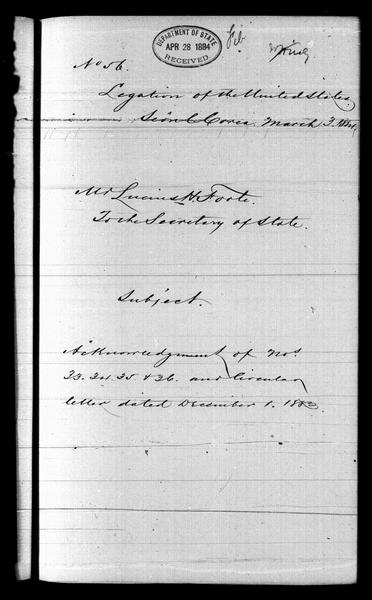 DEPARTMENT OF STATE
APR 28 1884
RECEIVED
No 56.
Legation of the United States
Seoul Corea. March 3. 1884
Mr Lucius H. Foote.
To the Secretary of State.
Subject.
Acknowledgment of Nos
33. 34. 35 & 36. and Circular
letter dated December 1. 1883